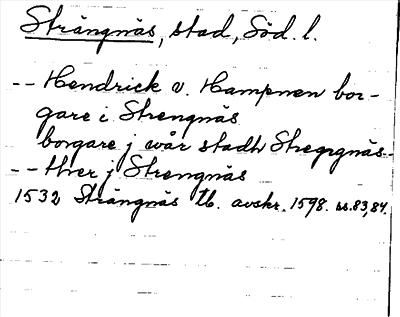 Strängnäs, stad, Söd. l.
-- Hendrick v. Hampnen bor-
gare i Strengnäs
borgare j wår stadh Stregngnäs--
-- Hver j Strengnäs
1532 Strängnäs tb. avskr. 1598. ss. 83, 84.